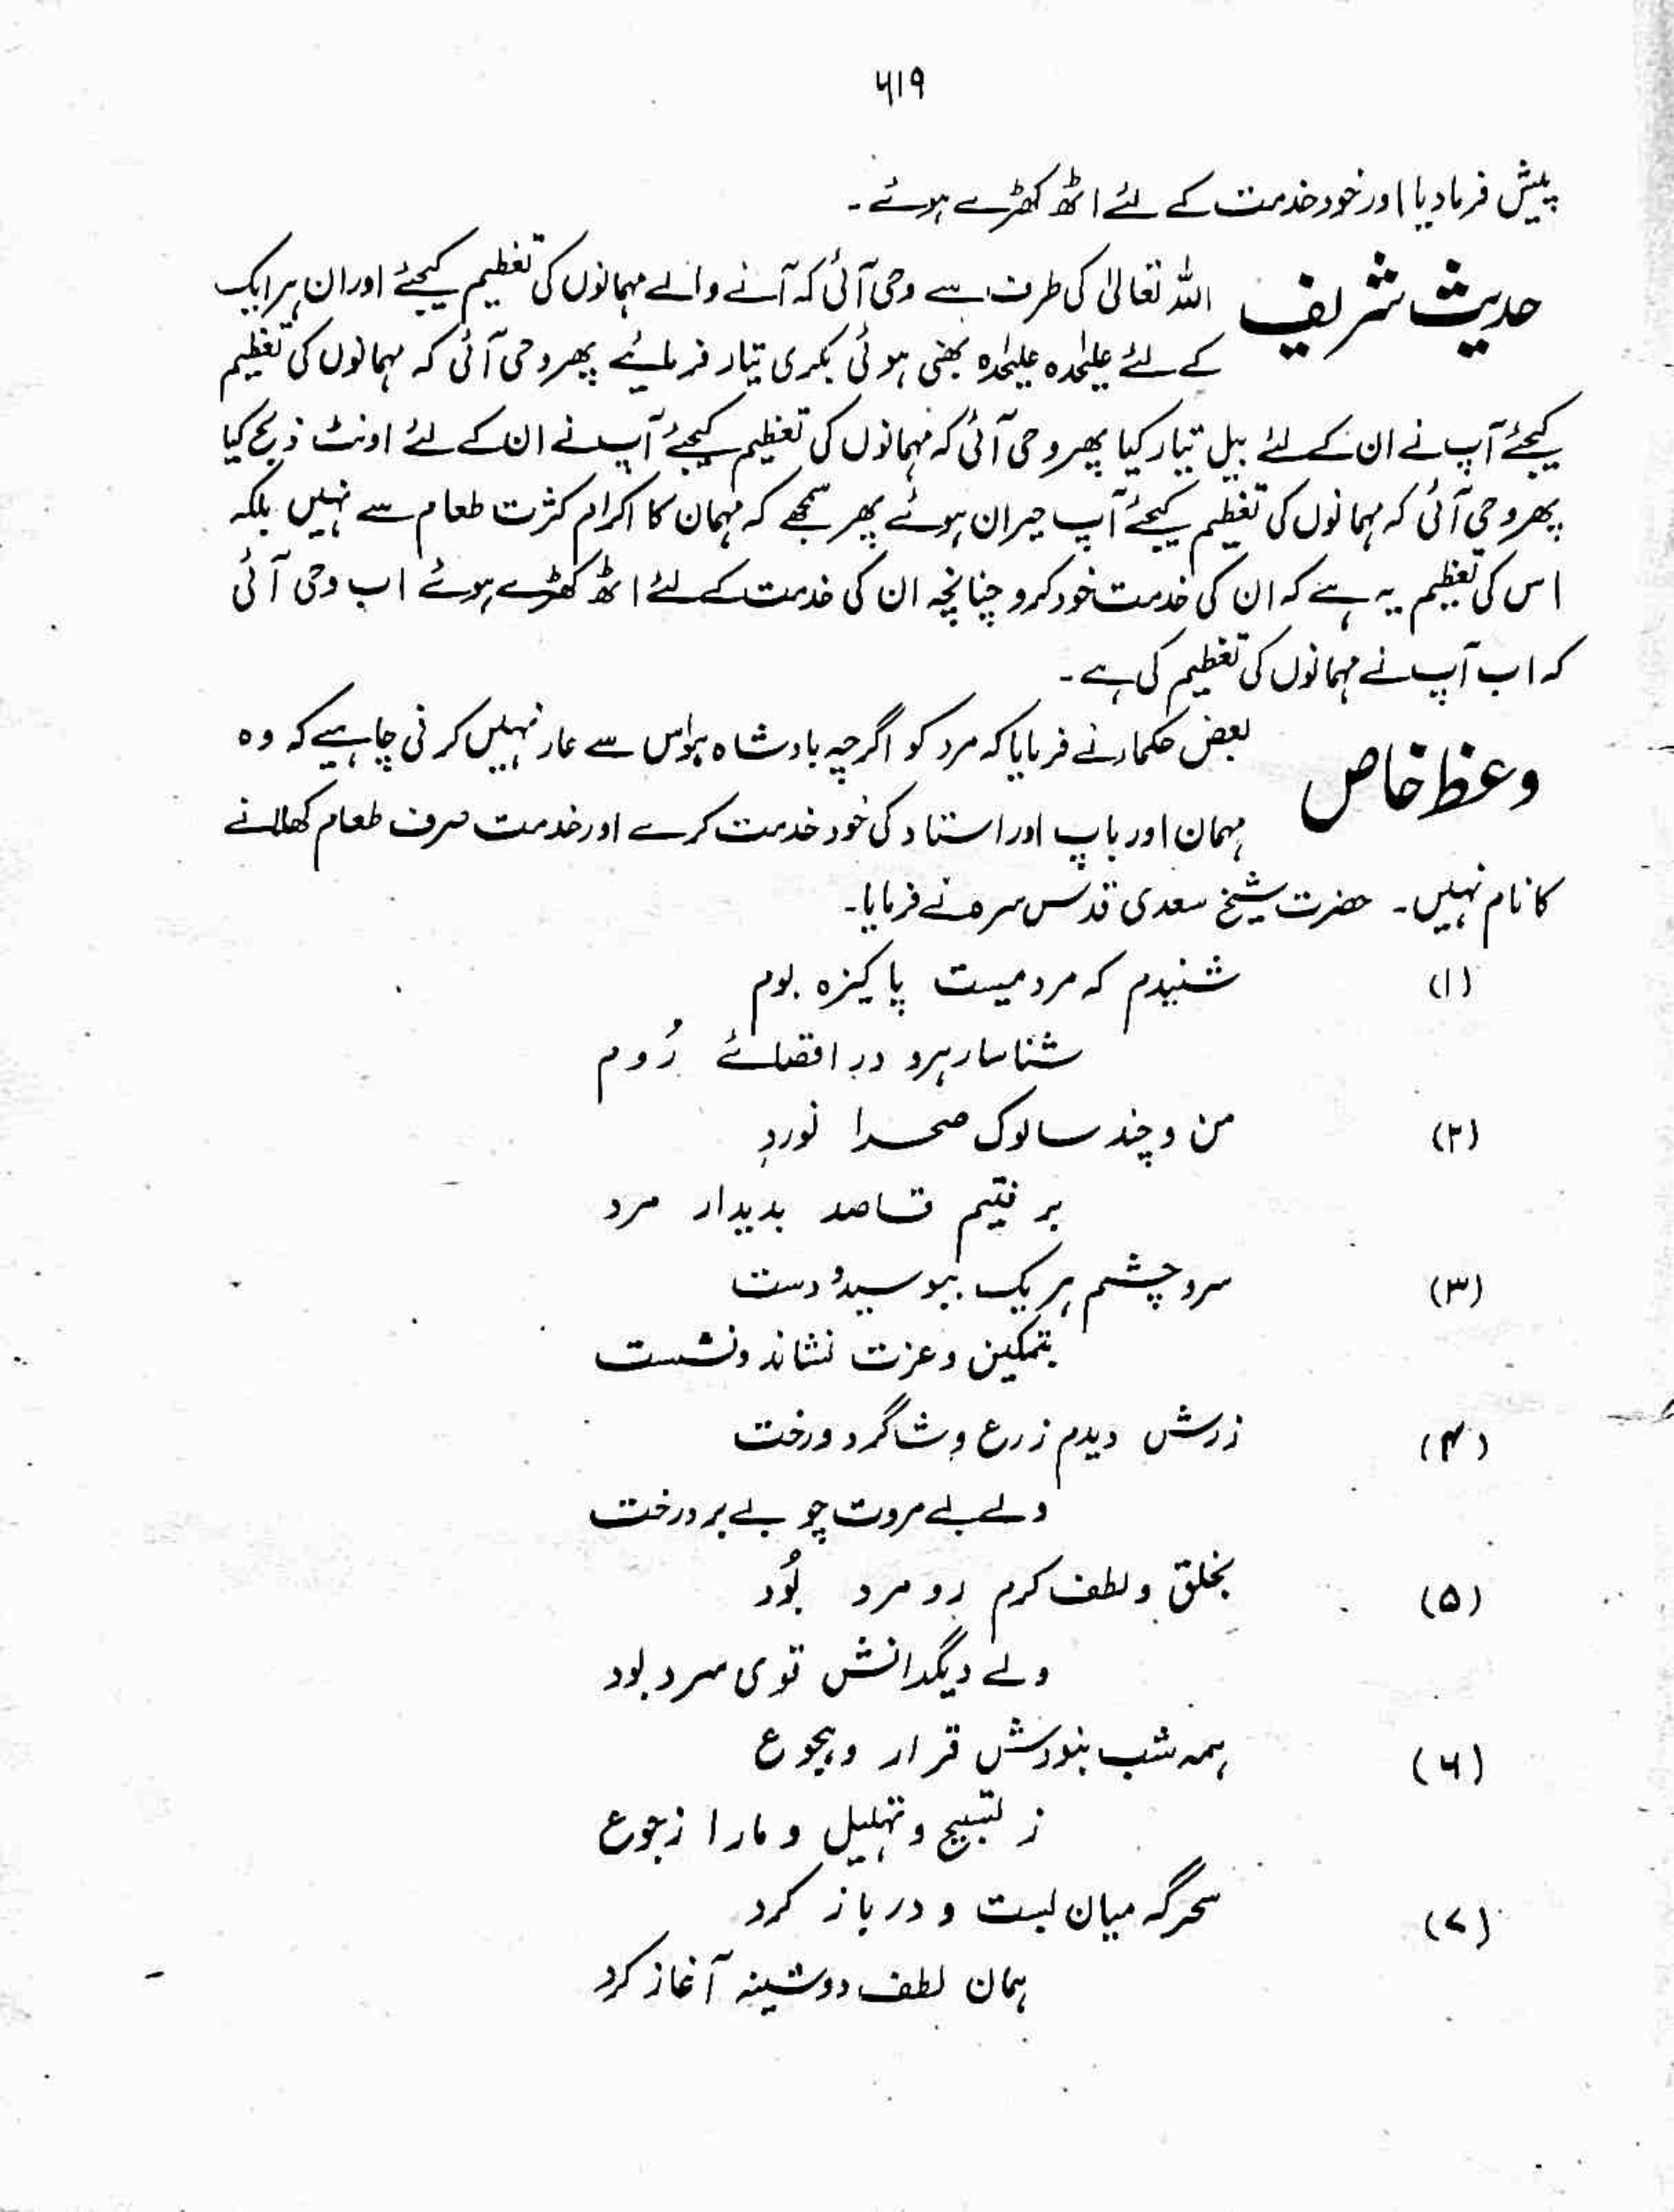 ۶۱۹
پیش فرمادیا اور خود خدمت کے لئے اٹھ کھڑے ہوئے۔
حدیث شریف اللہ تعالیٰ کی طرف سے وحی آئی کہ آنے والے مہمانوں کی تعظیم کیجئے اور ان ہر ایک
کے لئے علیٰحدہ علیٰحدہ بھنی ہوئی بکری تیار فرمایئے پھر وحی آئی کہ مہمانوں کی تعظیم
کیجئے آپ نے ان کے لئے بیل تیار کیا پھر وحی آئی کہ مہمانوں کی تعظیم کیجئے آپ نے ان کے لئے اونٹ ذبح کیا
پھر وحی آئی کہ مہمانوں کی تعظیم کیجئے آپ حیران ہوئے پھر سمجھے کہ مہمان کا اکرام کثرت طعام سے نہیں بلکہ
اس کی تعظیم یہ ہے کہ ان کی خدمت خود کرو چنانچہ ان کی خدمت کے لئے اٹھ کھڑے ہوئے اب وحی آئی
کہ اب آپ نے مہمانوں کی تعظیم کی ہے۔
وعظ خاص بعض حکماء نے فرمایا کہ مرد کو اگرچہ بادشاہ ہو اس سے عار نہیں کرنی چاہیے کہ وہ
مہمان اور باپ اور استاد کی خود خدمت کرے اور خدمت صرف طعام کھلانے
کا نام نہیں۔ حضرت شیخ سعدی قدس سرہ نے فرمایا۔
(۱) شنیدم کہ مردمیست پاکیزہ بوم
شناسا رہرو در اقصائے رُوم
(۲) من و چند سالوک صحرا نورد
برفتیم قاصد بدیدار مرد
(۳) سر و چشم ہر یک ببوسید و دست
بتمکین و عزت نشاند و نشست
(۴) زرش دیدم زرع و شاگرد ورخت
ولے بے مروت چو بے بر درخت
(۵) بخلق و لطف کرم رو مرد بُود
ولے دیگدانش توی سرد بود
(۶) ہمہ شب بنودش قرار و ہجوع
ز تسبیح و تہلیل و مارا زجوع
(۷) سحرگہ میان بست و در باز کرد
ہمان لطف دوشینہ آغاز کرد